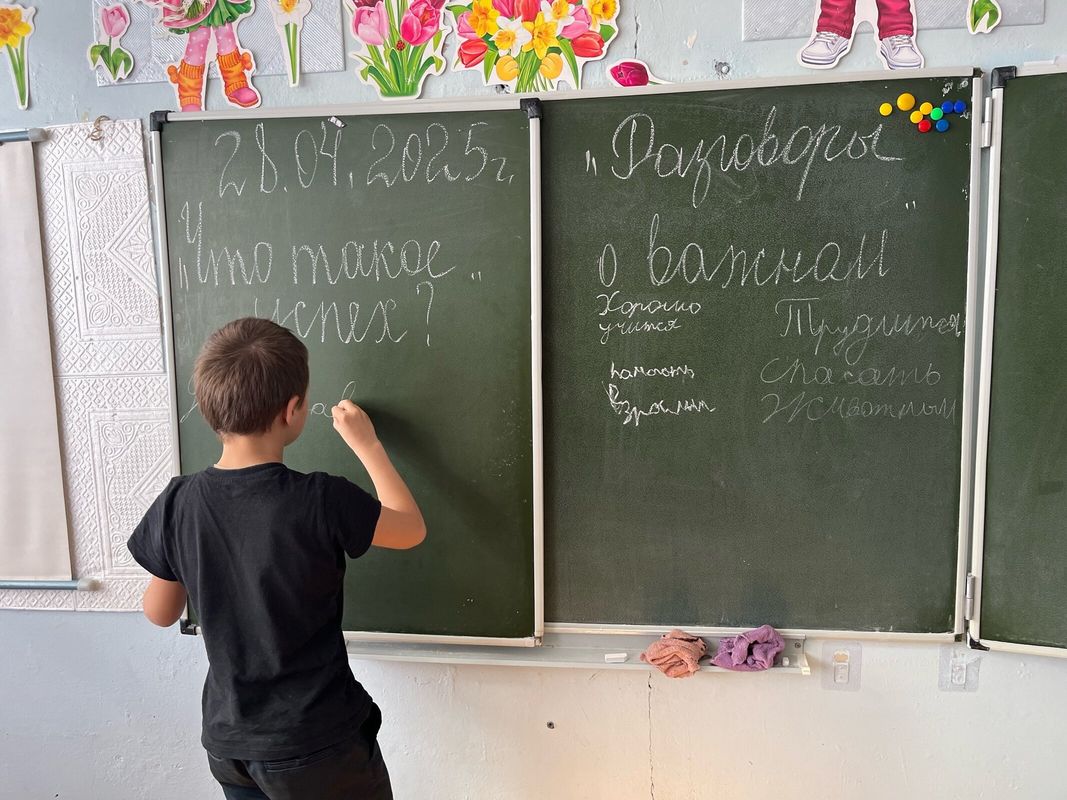 28.04.2025г.
„Что такое "
успех?
„Разговоры "
о важном
Хорошо
учится
Взрослым
Трудится
спасать
Животных